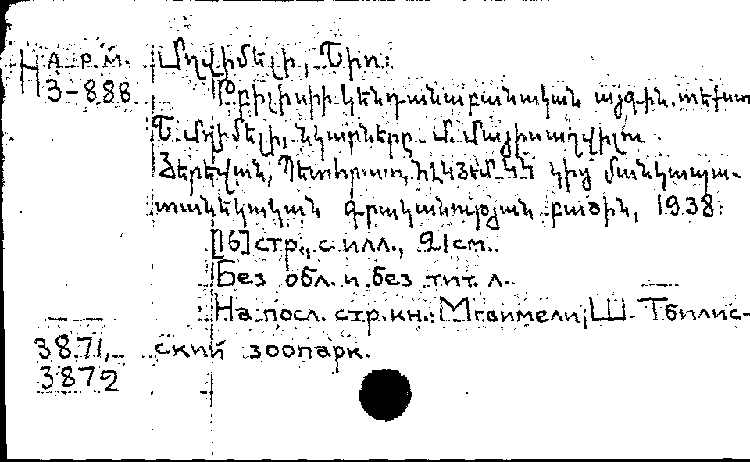 Арм. Մղվիմելի, Շիո։
Н3-888 Թբիլիսիի կենդանաբանական այգին. տեքստ
Շ. Մղվիմելի, նկարները Մ.
Յերևան, Պետհրատ, ՀԼԿՅԵՄ ԿԿ կից մանկապա-
տանեկական գրականության բաժին, 1938։
[16] стр., с илл., 21 см.
Без обл. и без тит. л.
На посл. стр. кн.: Мгвимели, Ш. Тбилис-
3871, ский зоопарк.
3872